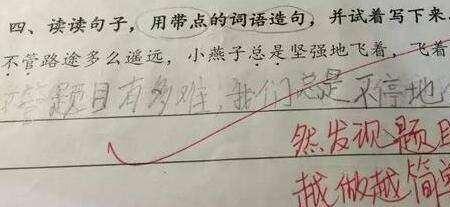 四、读读句子，用带点的词语造句，并试着写下来.
不管路途多么遥远，小燕子总是坚强地飞着，飞着
不管题目有多难，我们总是不停地
然发现题目
越做越简单